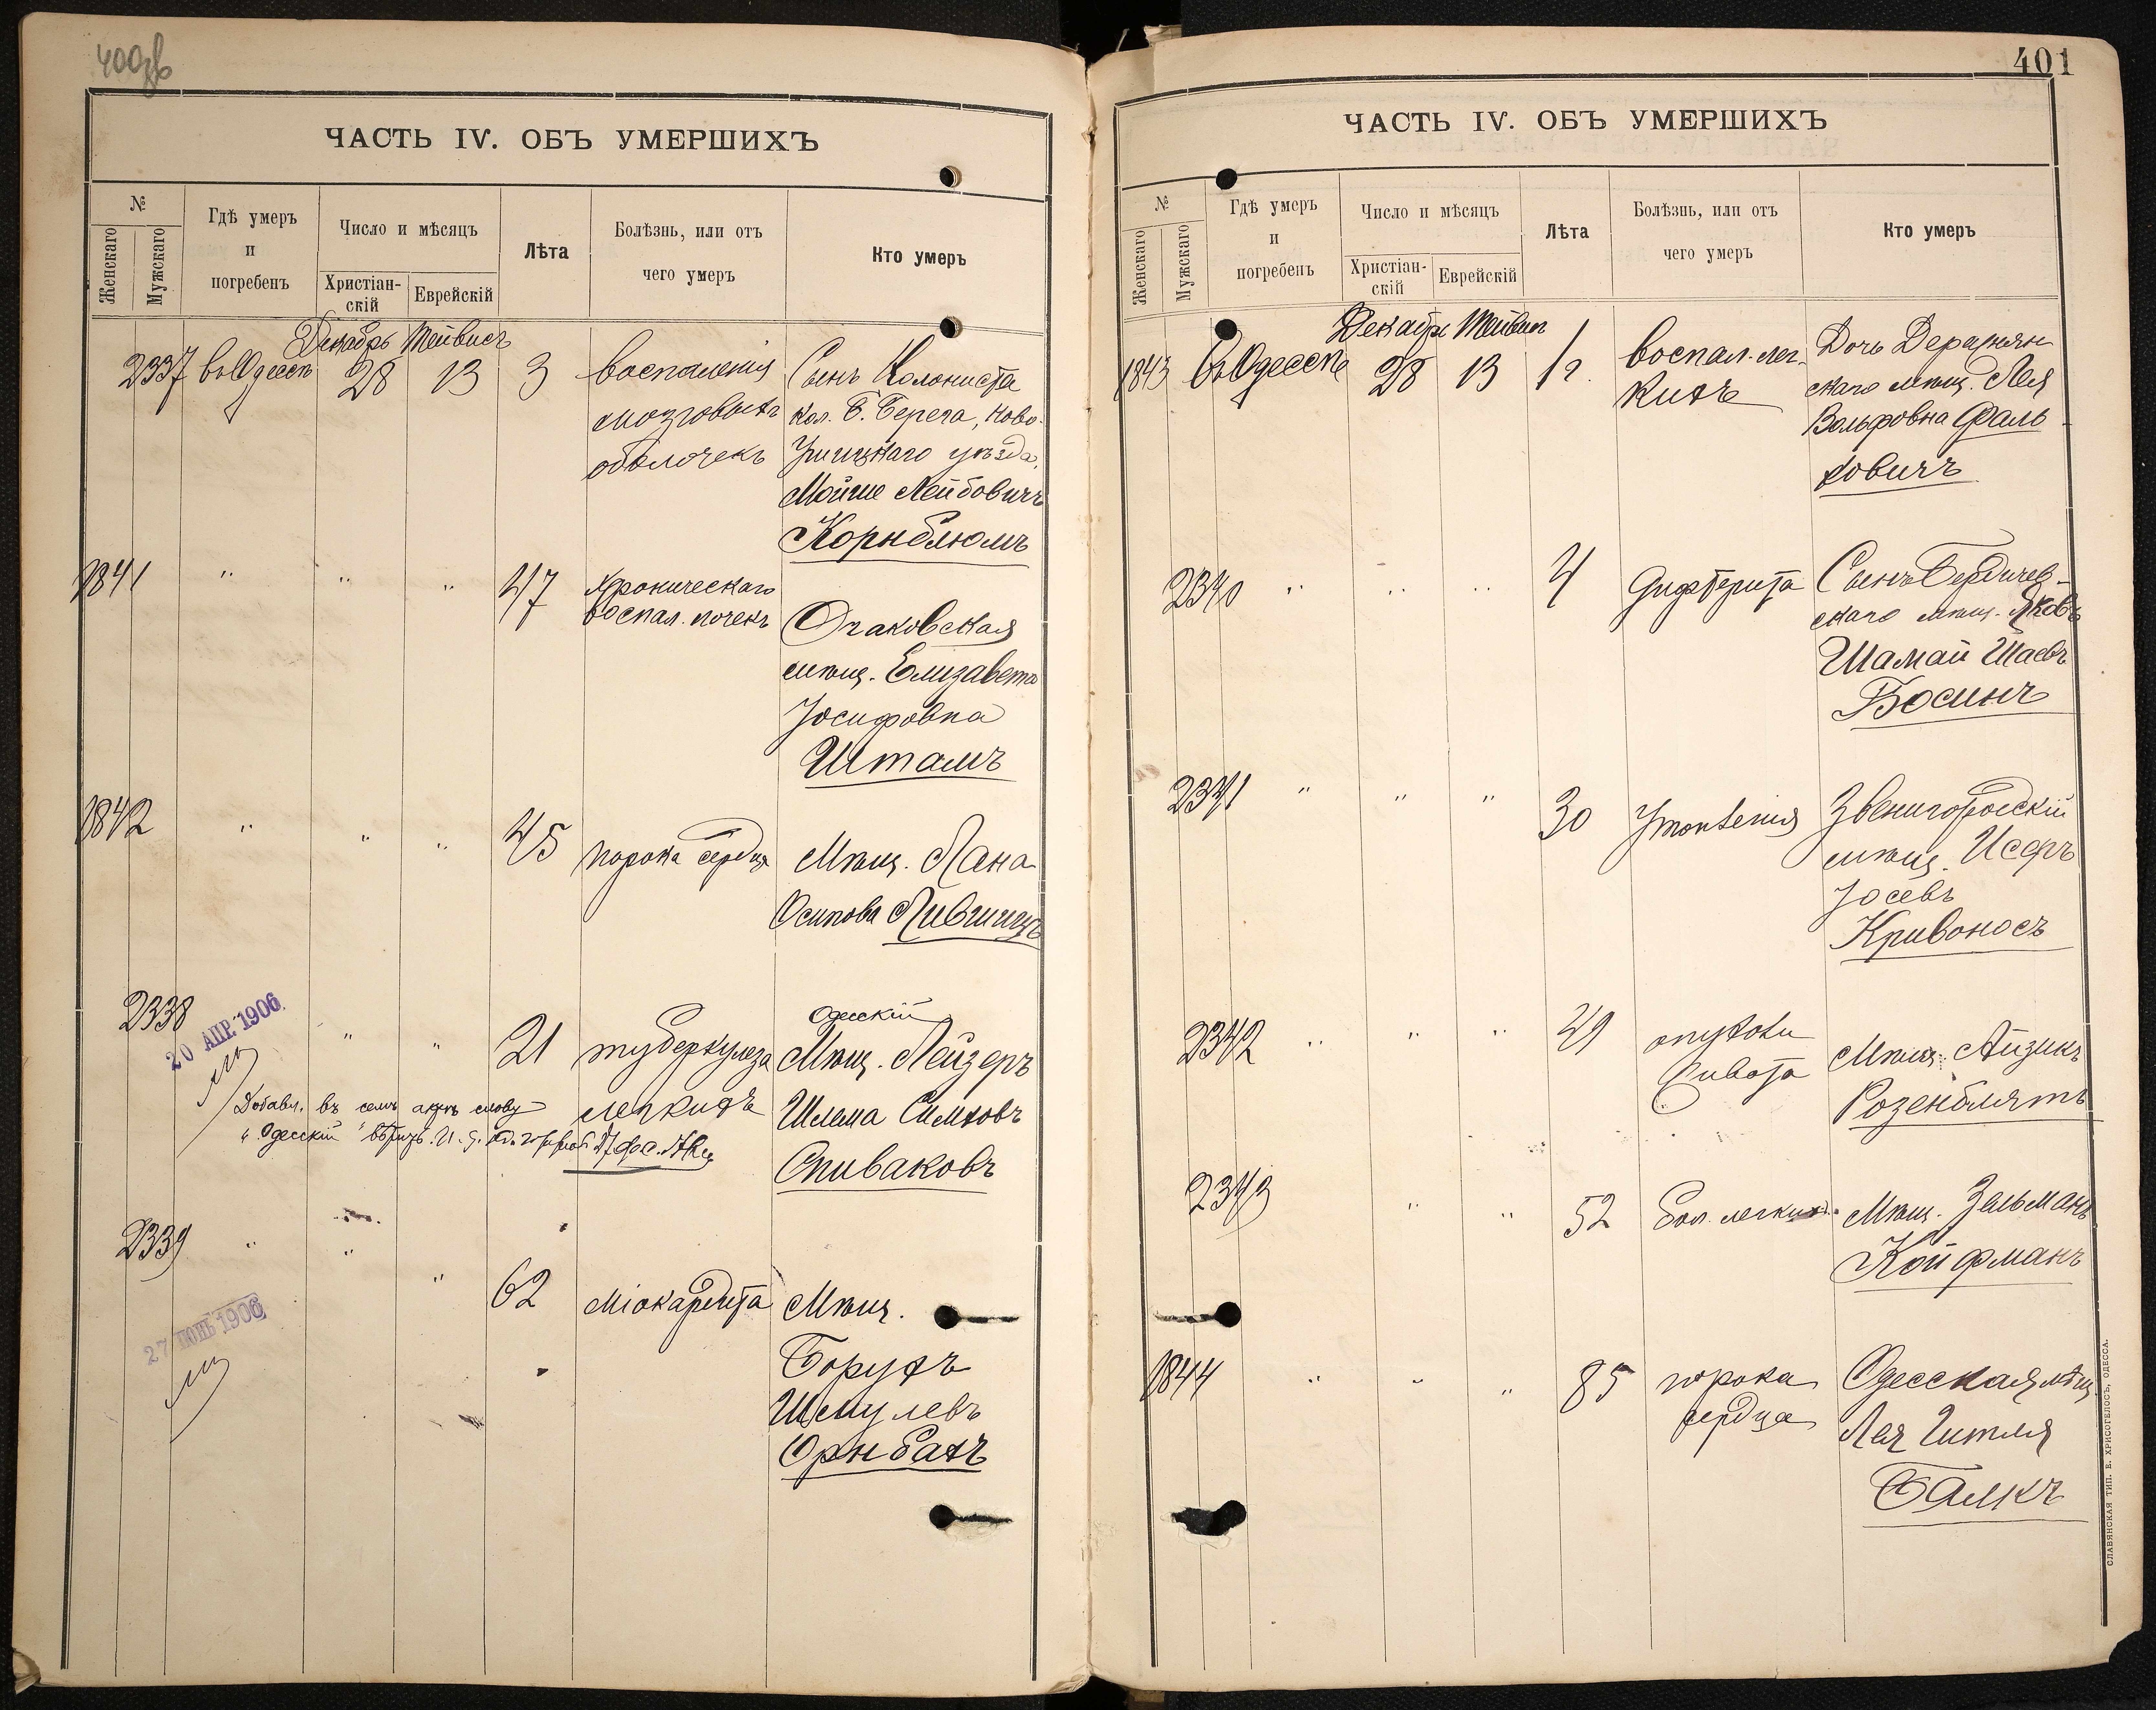 400об
ЧАСТЬ IV. ОБЪ УМЕРШИХЪ
№
Женскаго
Мужскаго
Гдѣ умеръ
и
погребенъ
Число и мѣсяцъ
Христіан-
скій
Еврейскій
Лѣта
Болѣзнь, или отъ
чего умеръ
Кто умеръ
Декабрь Тейвисъ
2337 въ Одессѣ 28 13 3 воспаленія Сынъ Колониста
мозговыхъ кол. Б. Берега, Ново-
оболочекъ Ушицкаго уѣзда,
Мойше Лейбовичъ
Корнблюмъ
1841 " " " 47 хроническаго
воспал. почекъ Очаковская
мѣщ. Елизавета
Іосифовна
Шталъ
1842 " " " 45 порока сердца Мѣщ. Хана
Осипова Лившицъ
2338 " " 21 туберкулеза Одесскій
Мѣщ. Лейзеръ
легкихъ Шлема Симховъ
Спиваковъ
20 АПР. 1906.
Добавл. въ семъ актѣ слову
"Одесскій" вѣрить.
2339 " " " 62 міокардита Мѣщ.
Борухъ
Шмулевъ
Орнбахъ
27 ІЮНЬ 1906
401
ЧАСТЬ IV. ОБЪ УМЕРШИХЪ
№
Женскаго
Мужскаго
Гдѣ умеръ
и
погребенъ
Число и мѣсяцъ
Христіан-
скій
Еврейскій
Лѣта
Болѣзнь, или отъ
чего умеръ
Кто умеръ
Декабрь Тейвис
1843 въ Одессѣ 28 13 1 г. воспал. лег- Дочь Деражнян
кихъ скаго мѣщ. Лея
Вольфовна Фаль
ковичъ
2340 " " " 4 дифтерита Сынъ Бердичев-
скаго мѣщ. Яковъ
Шамай Шаевъ
Босинъ
2341 " " " 30 Утопленія Звенигородскій
мѣщ. Исеръ
Іосевъ
Кривоносъ
2342 " " " 49 опухоли
живота Мѣщ. Айзикъ
Розенблятъ
2343 " " 52 бол. легкихъ Мѣщ. Зельманъ
Койфманъ
1844 " " " 85 порока Одесская мѣщ
сердца Лея Гитля
Балкъ
СЛАВЯНСКАЯ ТИП. Е. ХРИСОГЕЛОСЪ, ОДЕССА.